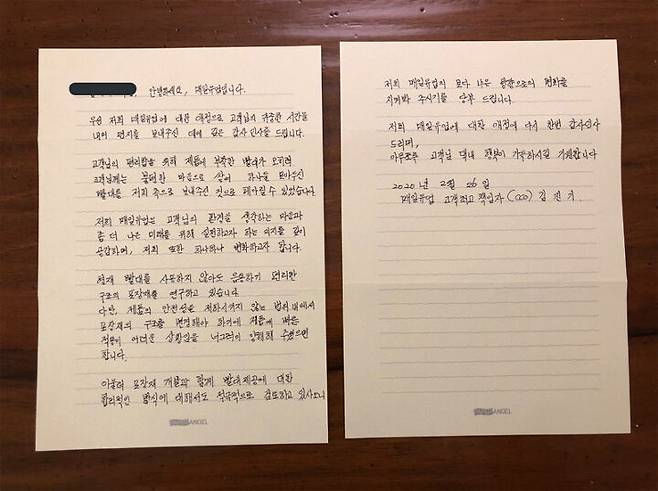 안녕하세요, 매일유업입니다.
우선 저희 매일유업에 대한 애정으로 고객님의 귀중한 시간을
내어 편지를 보내주신 데에 깊은 감사 인사를 드립니다.
고객님의 편리함을 위해 제품에 부착한 빨대가 오히려
고객님께는 불편한 마음으로 쌓여 하나둘 모아두신
빨대를 저희 측으로 보내주신 것으로 헤아릴 수 있었습니다.
저희 매일유업은 고객님의 환경을 생각하는 마음과
좀 더 나은 미래를 위해 실천하고자 하는 의지를 깊이
공감하며, 저희 또한 하나하나 변화하고자 합니다.
현재 빨대를 사용하지 않아도 음용하기 편리한
구조의 포장재를 연구하고 있습니다.
다만, 제품의 안전성을 저하시키지 않는 범위 내에서
포장재의 구조를 변경해야 하기에 제품에 빠른
적용이 어려운 상황임을 너그러이 양해해 주셨으면
합니다.
아울러 포장재 개발과 함께 빨대제공에 대한
합리적인 방식에 대해서도 적극적으로 검토하고 있사오니
ANGEL
저희 매일유업의 보다 나은 방향으로의 변화를
지켜봐 주시기를 당부 드립니다.
저희 매일유업에 대한 애정에 다시 한번 감사인사
드리며,
아무쪼록 고객님 댁내 행복이 가득하시길 기원합니다
2020년 2월 26일
매일유업 고객최고책임자 (CCO) 김진기
ANGEL